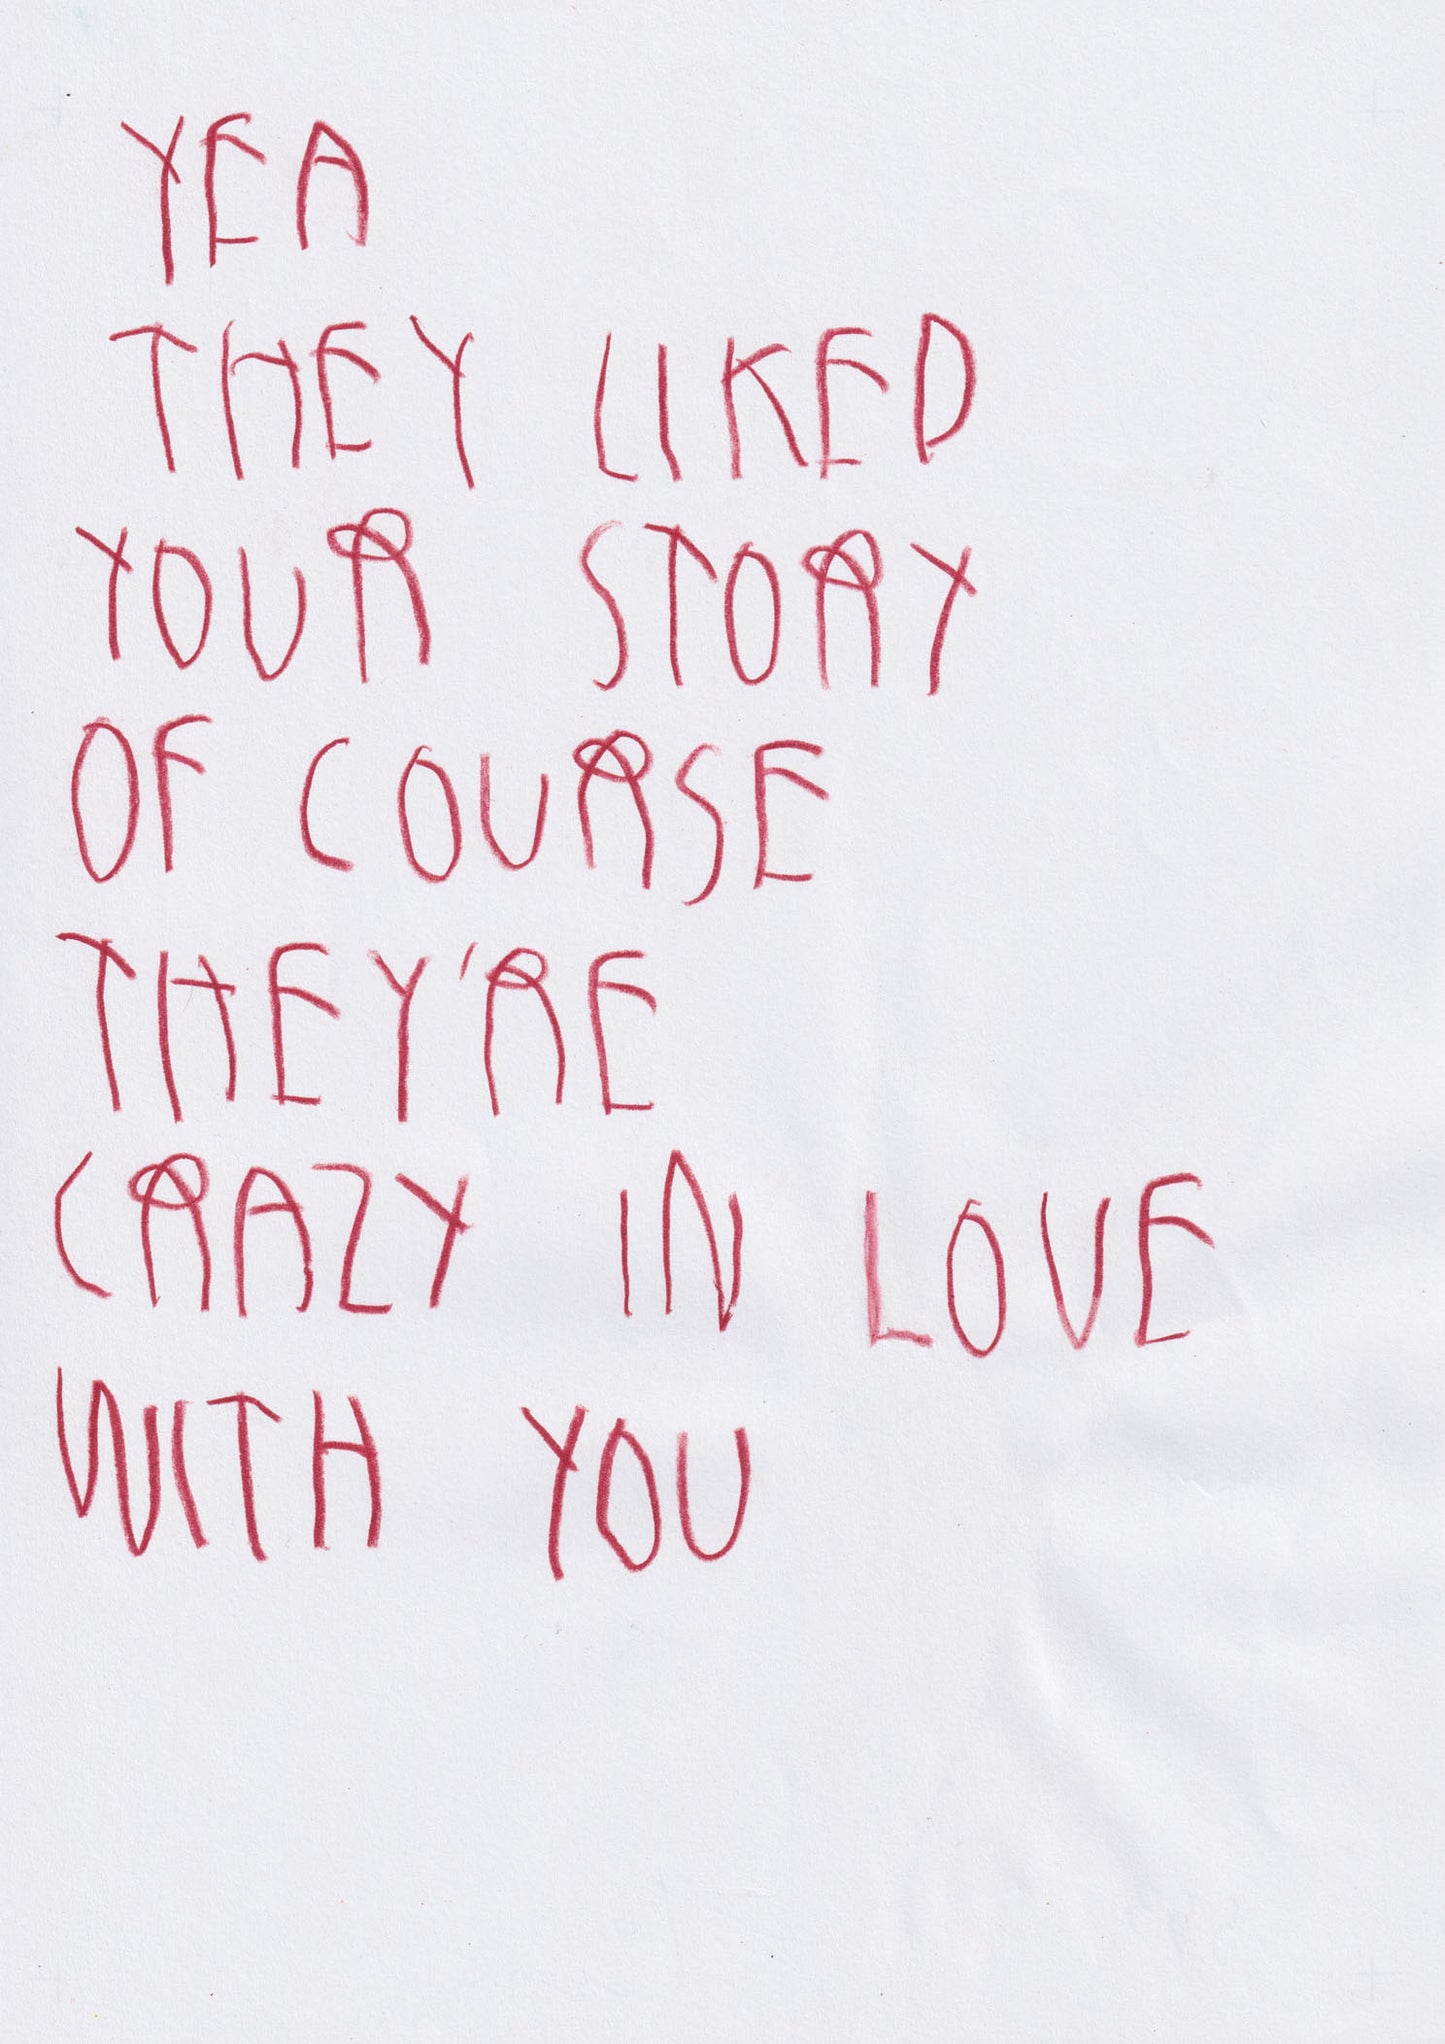 YEA
THEY LIKED
YOUR STORY
OF COURSE
THEY'RE
CRAZY IN LOVE
WITH YOU